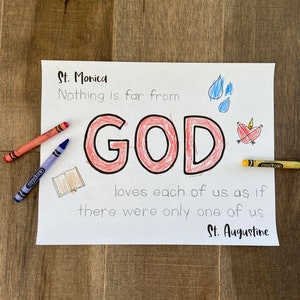 St. Monica
Nothing is far from
GOD
loves each of us as if
there were only one of us.
St. Augustine